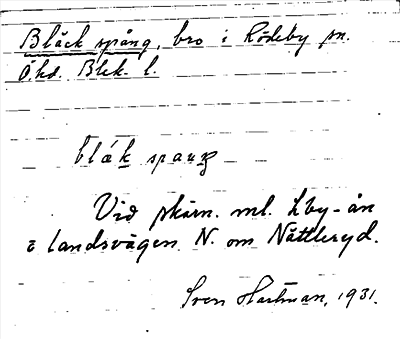 Bläck spång, bro i Rödeby sn.
Ö. hd. Blek. l.
blák spaŋ
Vid skärn. ml. Lby-ån
o landsvägen N. om Nättleryd.
Sven Hartman, 1931.